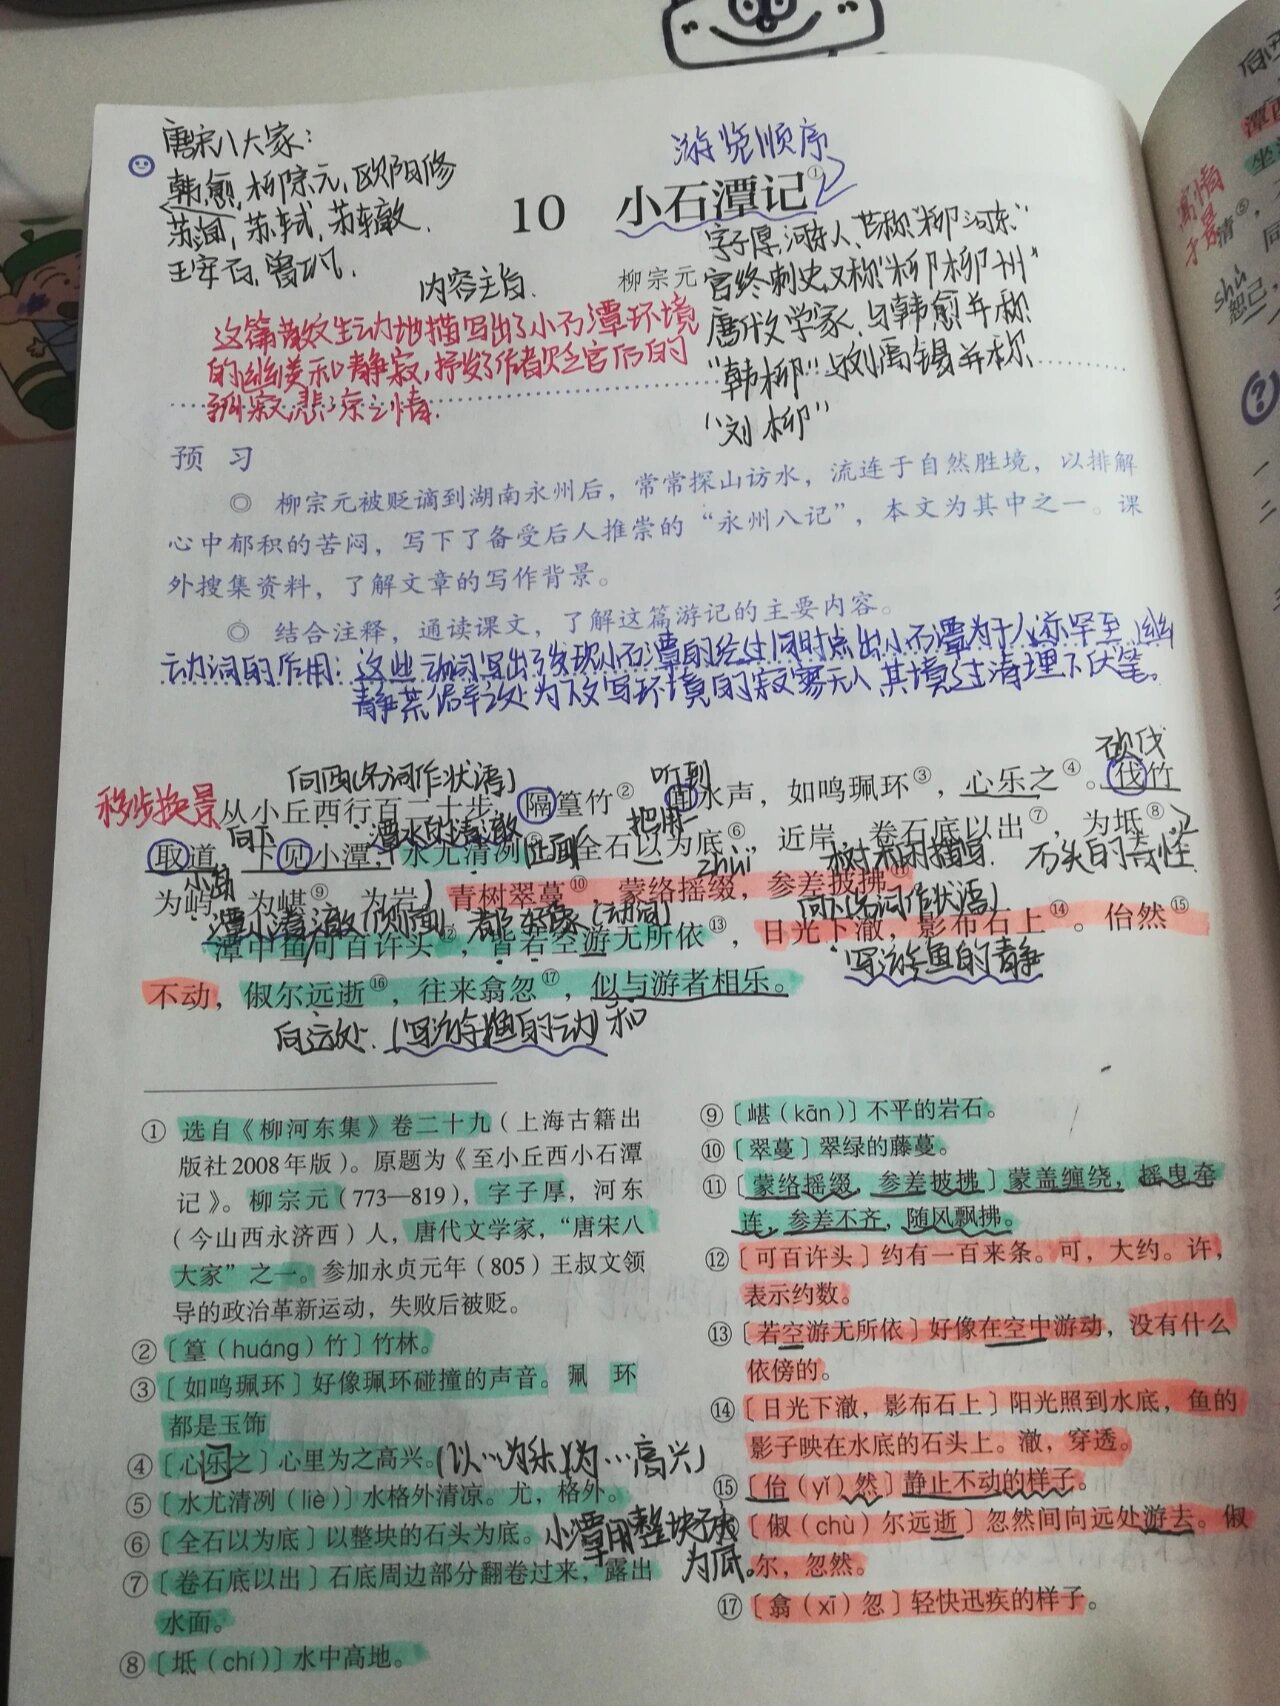 唐宋八大家：
韩愈，柳宗元，欧阳修
苏洵，苏轼，苏辙
王安石，曾巩.
游览顺序
10 小石潭记①
柳宗元
字子厚，河东人，世称“柳河东”
官终刺史，又称“柳柳州”
唐代文学家，与韩愈并称
“韩柳”与刘禹锡并称
“刘柳”
内容主旨.
这篇散文生动地描写出了小石潭环境
的幽美和静寂，抒发了作者贬官后的
孤寂悲凉之情.
预 习
◎ 柳宗元被贬谪到湖南永州后，常常探山访水，流连于自然胜境，以排解
心中郁积的苦闷，写下了备受后人推崇的“永州八记”，本文为其中之一。课
外搜集资料，了解文章的写作背景。
◎ 结合注释，通读课文，了解这篇游记的主要内容。
动词的作用：这些动词写出了发现小石潭的经过同时点出小石潭为于人迹罕至，幽
静荒僻之处为下文写环境的寂寥无人，其境过清埋下伏笔。
向西(名词作状语)
听到
砍伐
移步换景
从小丘西行百二十步，隔篁竹②，闻水声，如鸣珮环③，心乐之④。伐竹
向下
潭水的清澈
正面
把用
取道，下见小潭，水尤清冽⑤。全石以为底⑥，近岸，卷石底以出⑦，为坻⑧，
小岛
zhuì
树木的描写.
石头的奇怪
为屿，为嵁⑨，为岩。青树翠蔓⑩，蒙络摇缀，参差披拂⑪。
潭水清澈(侧面)
都
好像
(动词)
向下(名词作状语)
潭中鱼可百许头⑫，皆若空游无所依⑬，日光下澈，影布石上⑭。佁然⑮
写游鱼的静
不动，俶尔远逝⑯，往来翕忽⑰，似与游者相乐。
向远处.(写游鱼的动)
和
① 选自《柳河东集》卷二十九（上海古籍出
版社2008年版）。原题为《至小丘西小石潭
记》。柳宗元（773—819），字子厚，河东
（今山西永济西）人，唐代文学家，“唐宋八
大家”之一。参加永贞元年（805）王叔文领
导的政治革新运动，失败后被贬。
②〔篁（huáng）竹〕竹林。
③〔如鸣珮环〕好像珮环碰撞的声音。珮 环
都是玉饰
④〔心乐之〕心里为之高兴。(以…为乐，为…高兴)
⑤〔水尤清冽（liè）〕水格外清凉。尤，格外。
⑥〔全石以为底〕以整块的石头为底。
小潭用整块石头
为底。
⑦〔卷石底以出〕石底周边部分翻卷过来，露出
水面。
⑧〔坻（chí）〕水中高地。
⑨〔嵁（kān）〕不平的岩石。
⑩〔翠蔓〕翠绿的藤蔓。
⑪〔蒙络摇缀，参差披拂〕蒙盖缠绕，摇曳牵
连，参差不齐，随风飘拂。
⑫〔可百许头〕约有一百来条。可，大约。许，
表示约数。
⑬〔若空游无所依〕好像在空中游动，没有什么
依傍的。
⑭〔日光下澈，影布石上〕阳光照到水底，鱼的
影子映在水底的石头上。澈，穿透。
⑮〔佁（yǐ）然〕静止不动的样子。
〔俶（chù）尔远逝〕忽然间向远处游去。俶
尔，忽然。
⑰〔翕（xī）忽〕轻快迅疾的样子。
寓情
于景
清⑤，
shù
恕己，